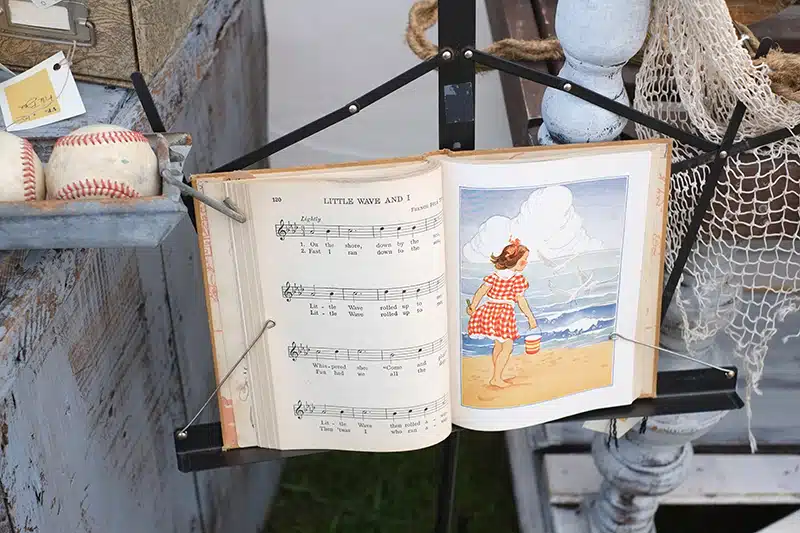 120
LITTLE WAVE AND I
Lightly
1. On the shore, down by the
2. Fast I ran down to the
Lit - tle Wave rolled up to
Lit - tle Wave rolled up to
Whis - pered "Come and
all the
Lit - tle Wave then rolled
Then 'twas I who ran